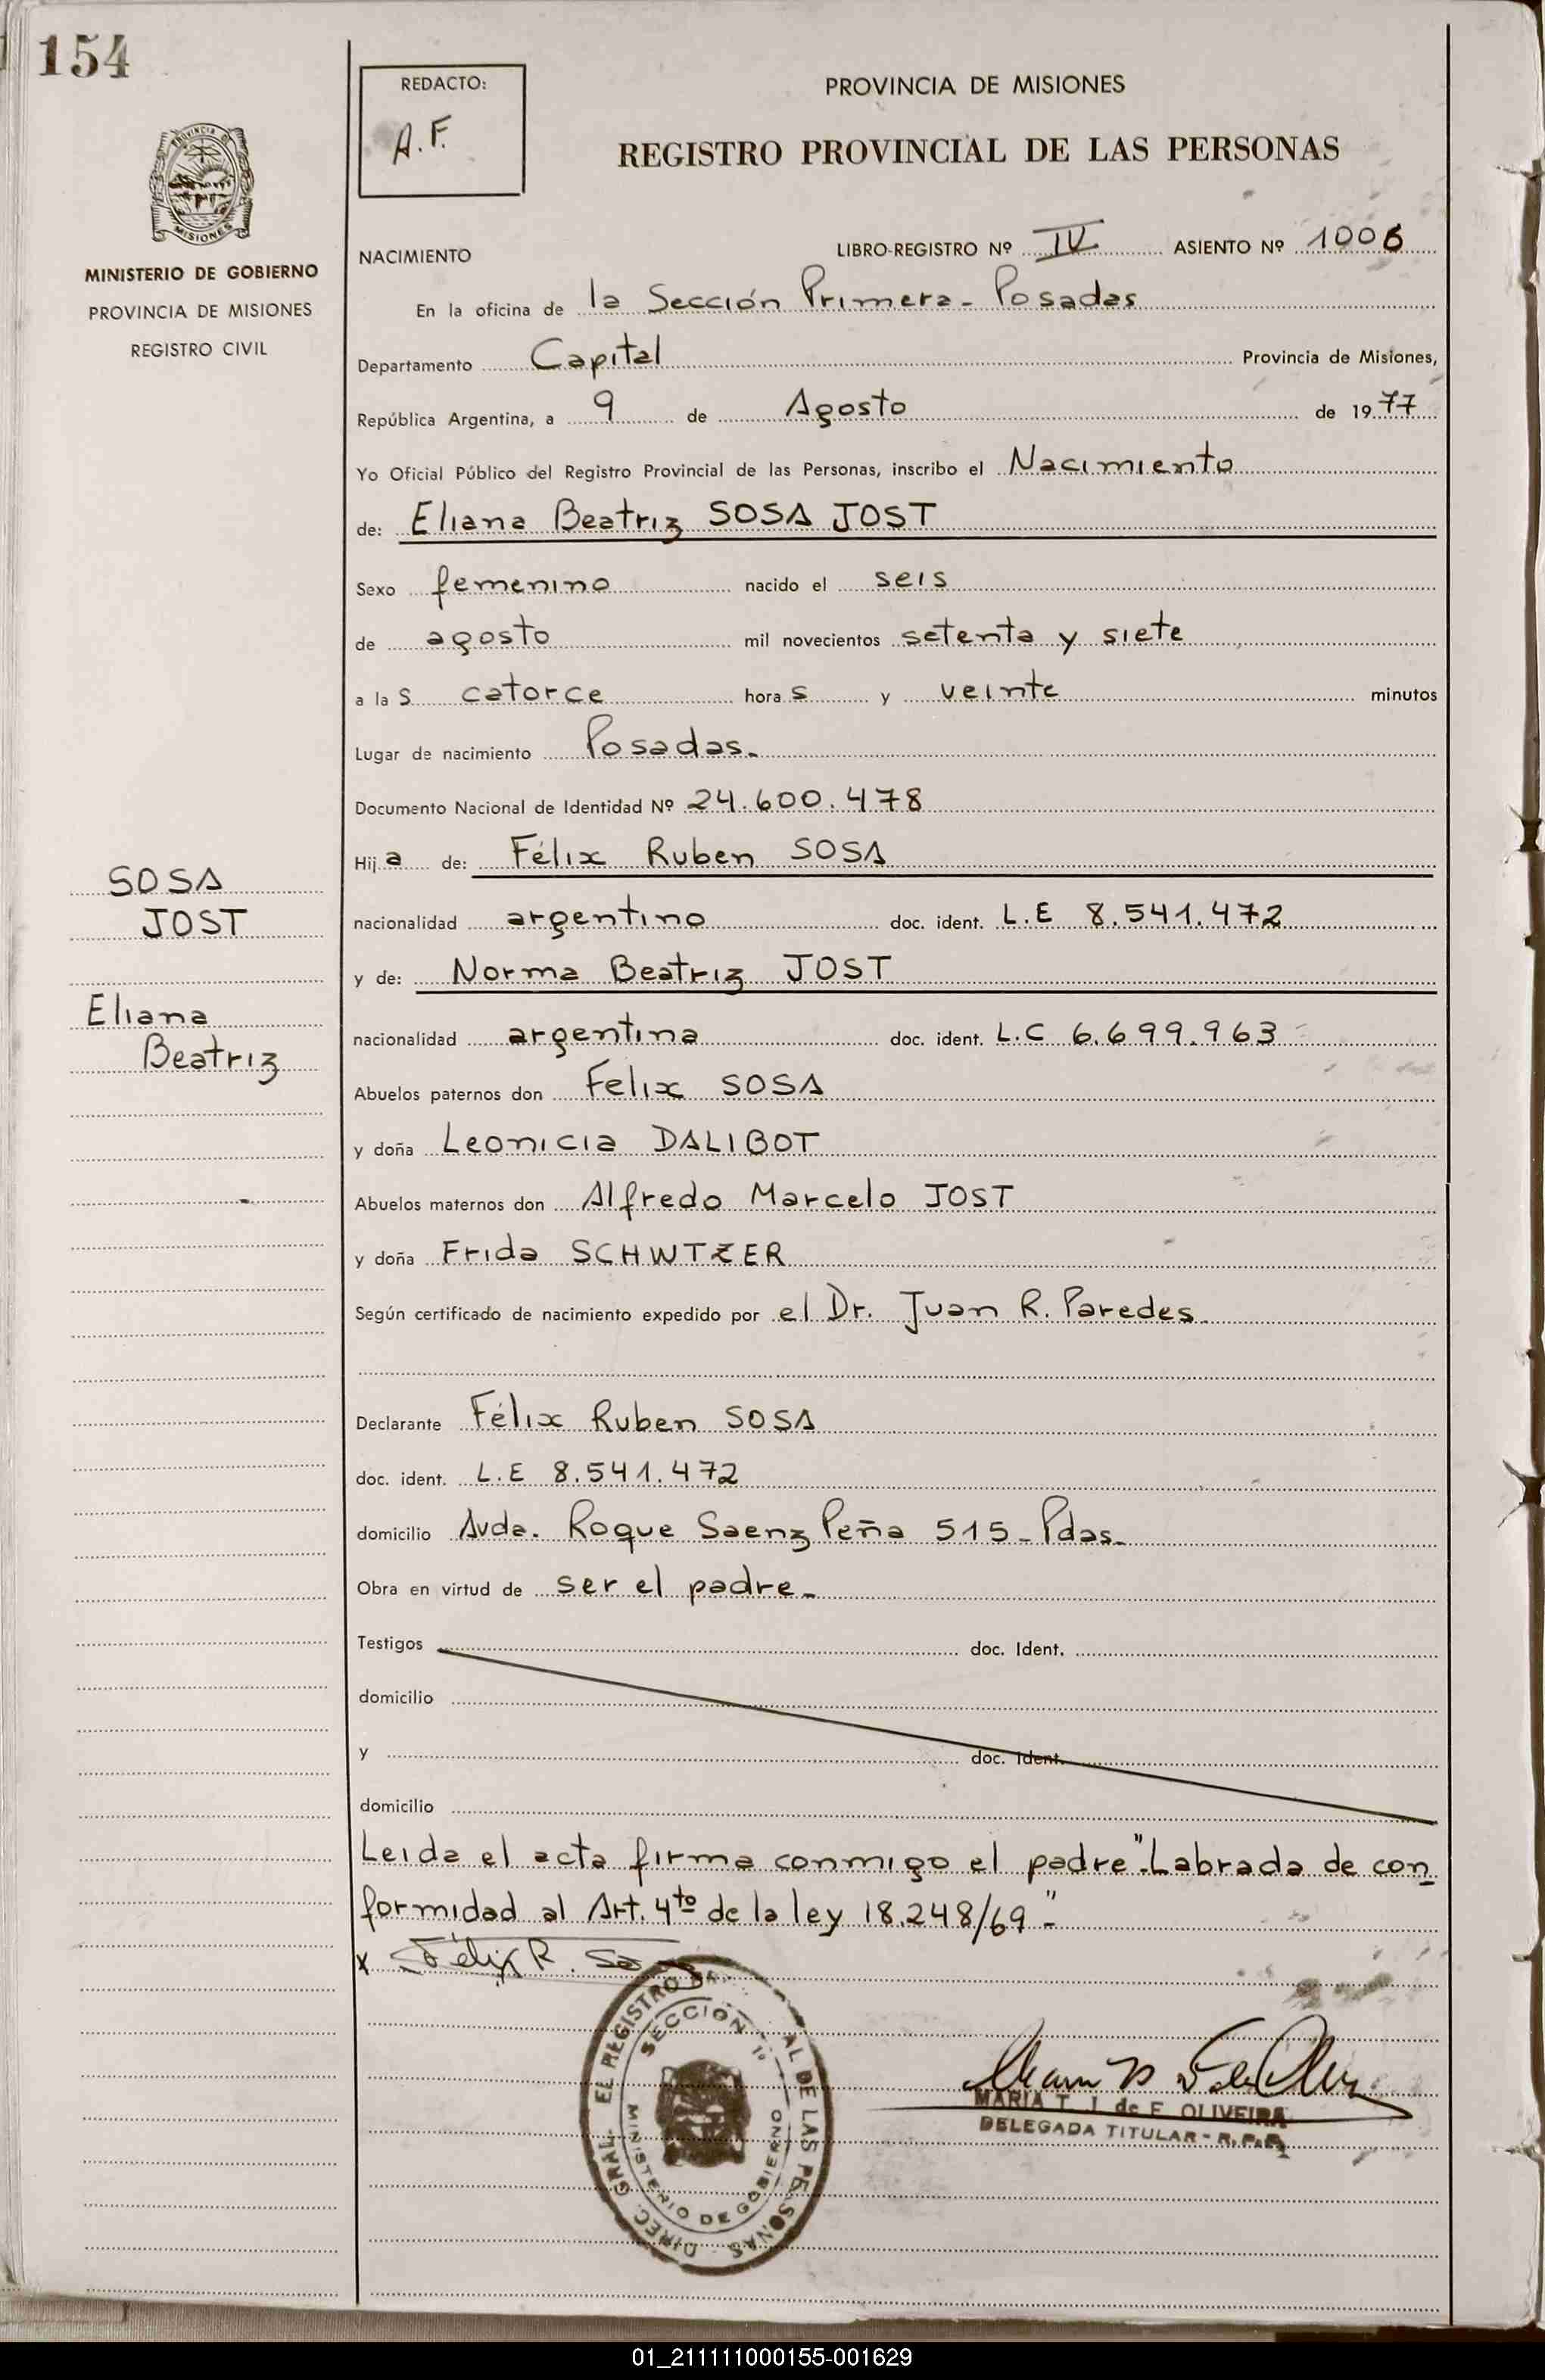 154
REDACTO:
A.F.
PROVINCIA DE MISIONES
REGISTRO PROVINCIAL DE LAS PERSONAS
PROVINCIA DE
MISIONES
MINISTERIO DE GOBIERNO
PROVINCIA DE MISIONES
REGISTRO CIVIL
NACIMIENTO LIBRO-REGISTRO Nº IV ASIENTO Nº 1006
En la oficina de la Sección Primera - Posadas
Departamento Capital Provincia de Misiones,
República Argentina, a 9 de Agosto de 1977
Yo Oficial Público del Registro Provincial de las Personas, inscribo el Nacimiento
de: Eliana Beatriz SOSA JOST
Sexo femenino nacido el seis
de agosto mil novecientos setenta y siete
a la s catorce hora s y veinte minutos
Lugar de nacimiento Posadas.-
Documento Nacional de Identidad Nº 24.600.478
Hij a de: Félix Ruben SOSA
SOSA
JOST
Eliana
Beatriz
nacionalidad argentino doc. ident. L.E 8.541.472
y de: Norma Beatriz JOST
nacionalidad argentina doc. ident. L.C 6.699.963
Abuelos paternos don Felix SOSA
y doña Leonicia DALIBOT
Abuelos maternos don Alfredo Marcelo JOST
y doña Frida SCHWTZER
Según certificado de nacimiento expedido por el Dr. Juan R. Paredes
Declarante Félix Ruben SOSA
doc. ident. L.E 8.541.472
domicilio Avda. Roque Saenz Peña 515 - Pdas.-
Obra en virtud de ser el padre.-
Testigos doc. Ident.
domicilio
y doc. Ident.
domicilio
Leida el acta firma conmigo el padre "Labrada de con
formidad al Art. 4to de la ley 18.248/69"-
x Félix R. So
DIREC. GRAL. EL REGISTRO AL DE LAS PE SONAS
SECCION 1º
MINISTERIO DE GOBIERNO
MARIA T. J. de F. OLIVEIRA
DELEGADA TITULAR - R.P.P.
01_211111000155-001629